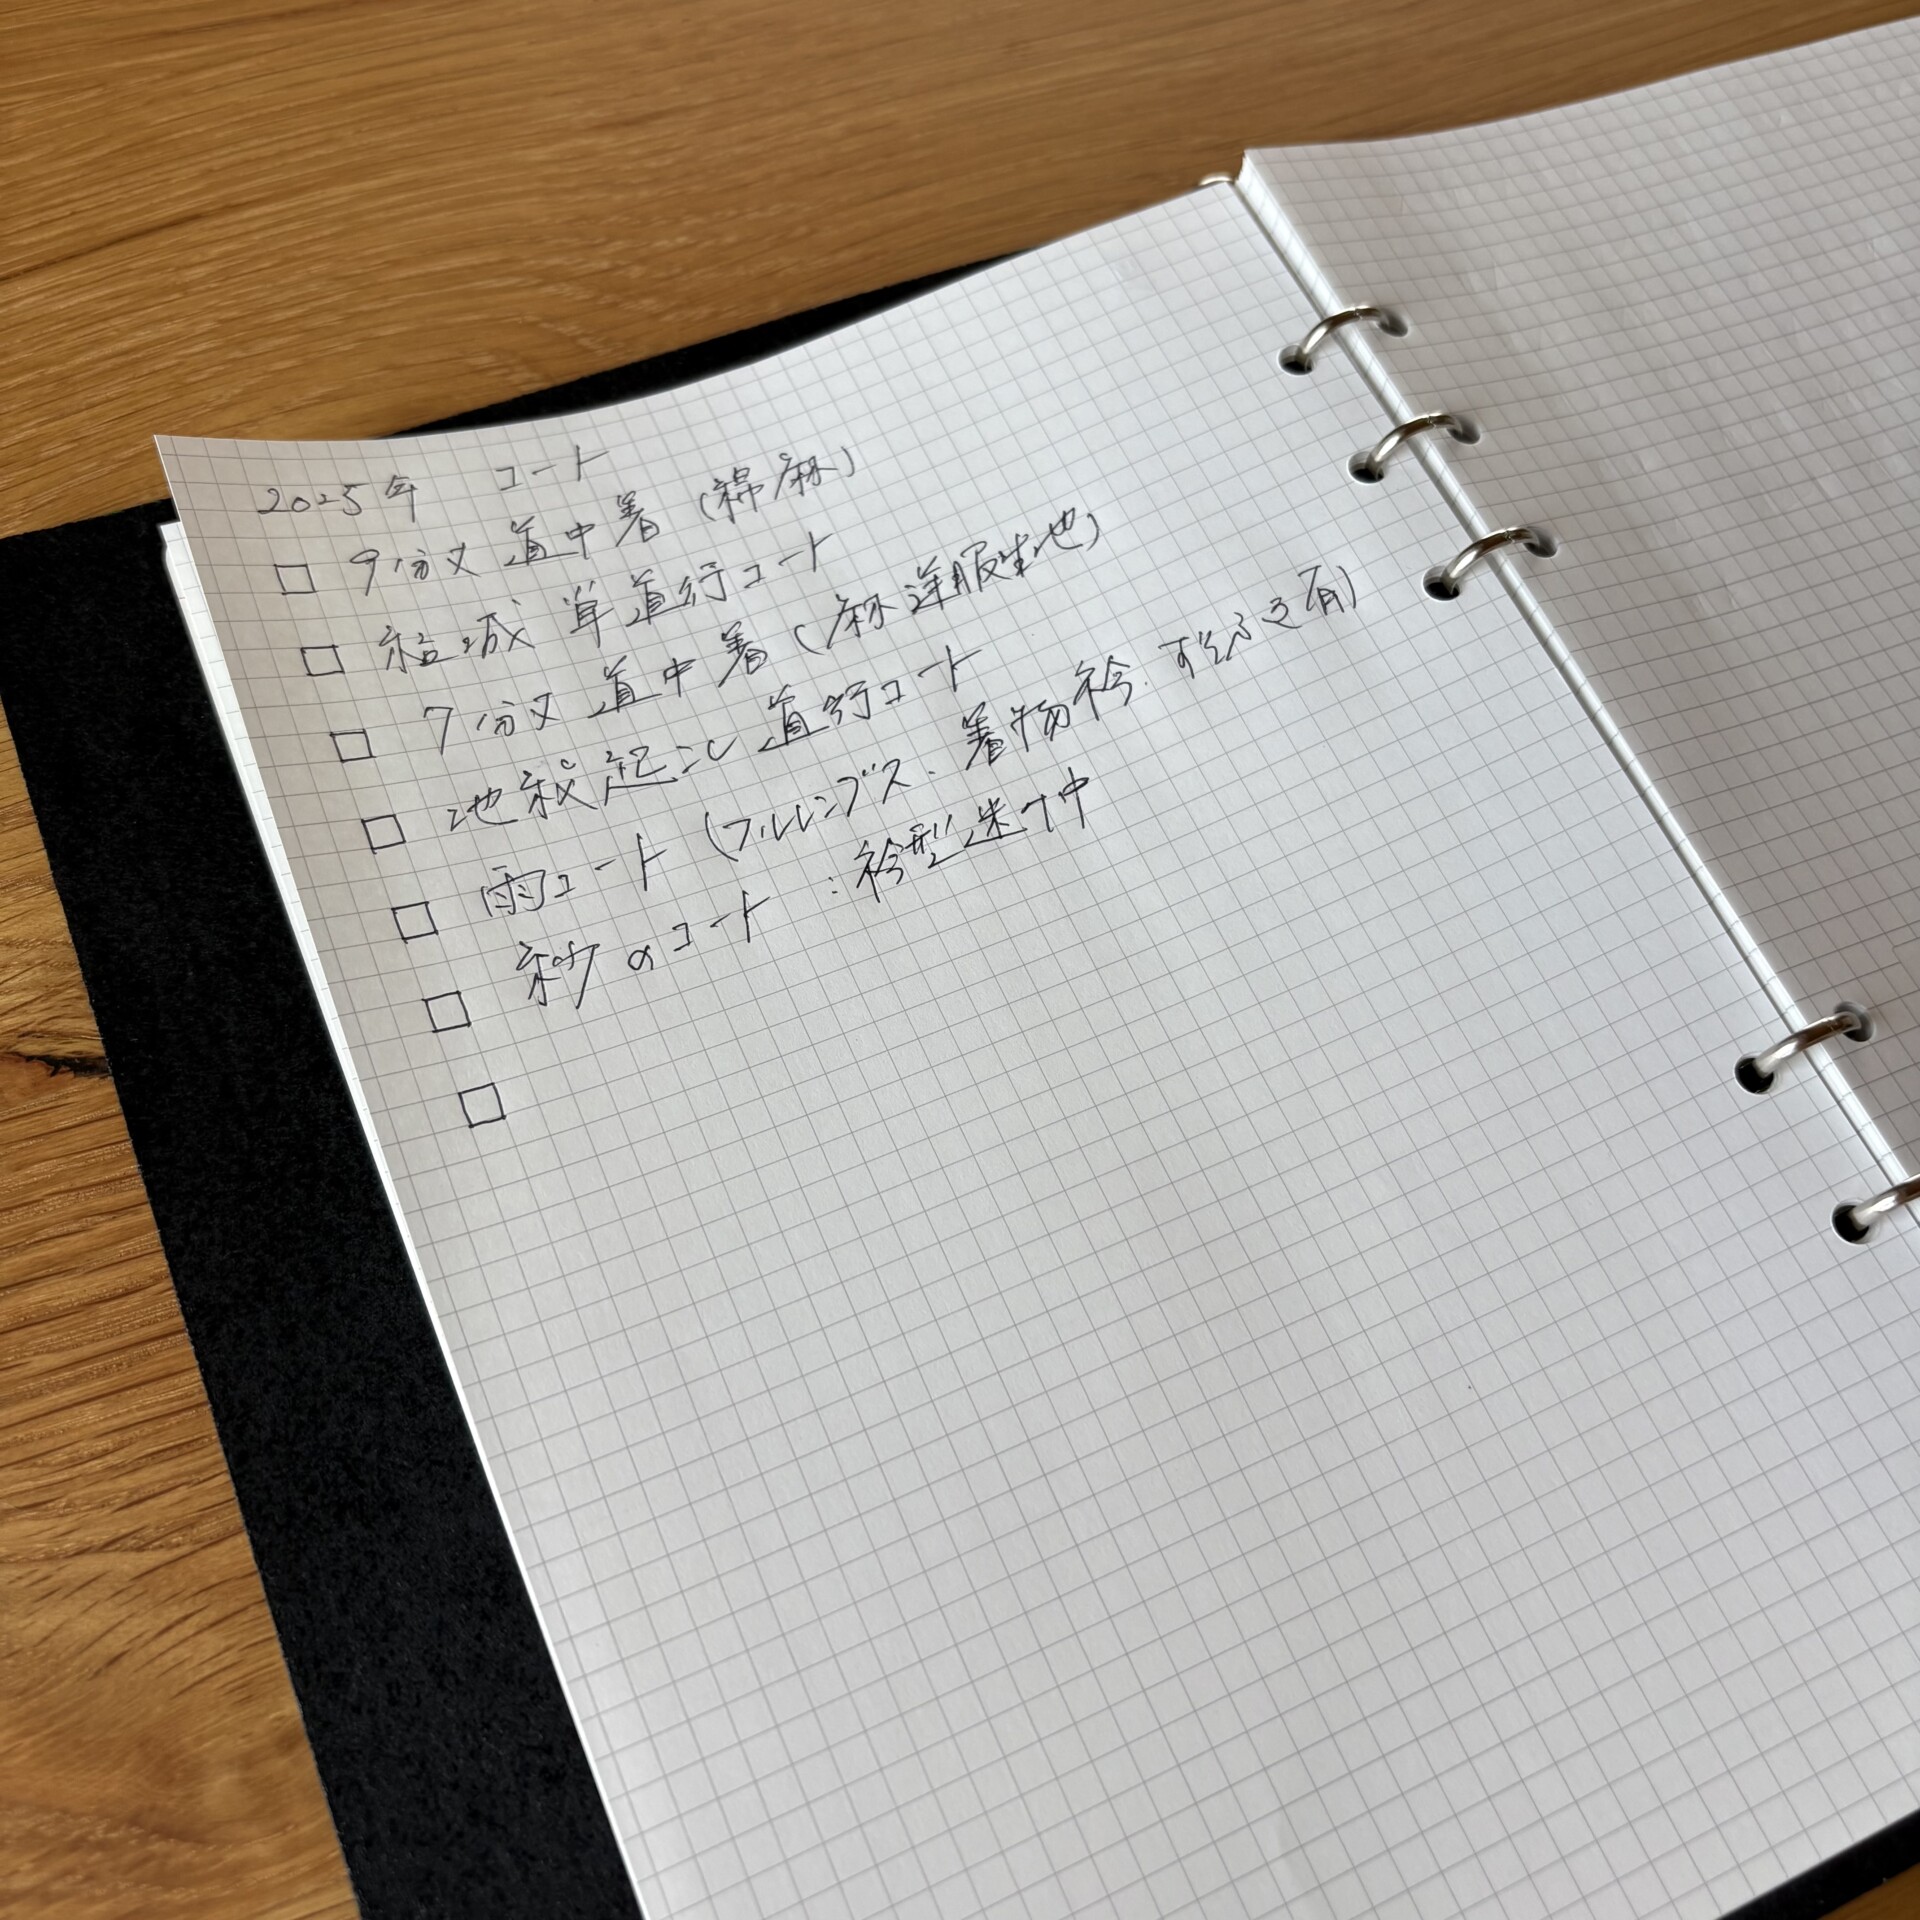 2025年 コート
□ 9分丈 道中着 (綿麻)
□ 結城 単道行コート
□ 7分丈 道中着 (麻洋服生地)
□ 地紋起こし 道行コート
□ 雨コート (フルレングス、着物衿、すそふき有)
□ 紗のコート : 衿型迷い中
□